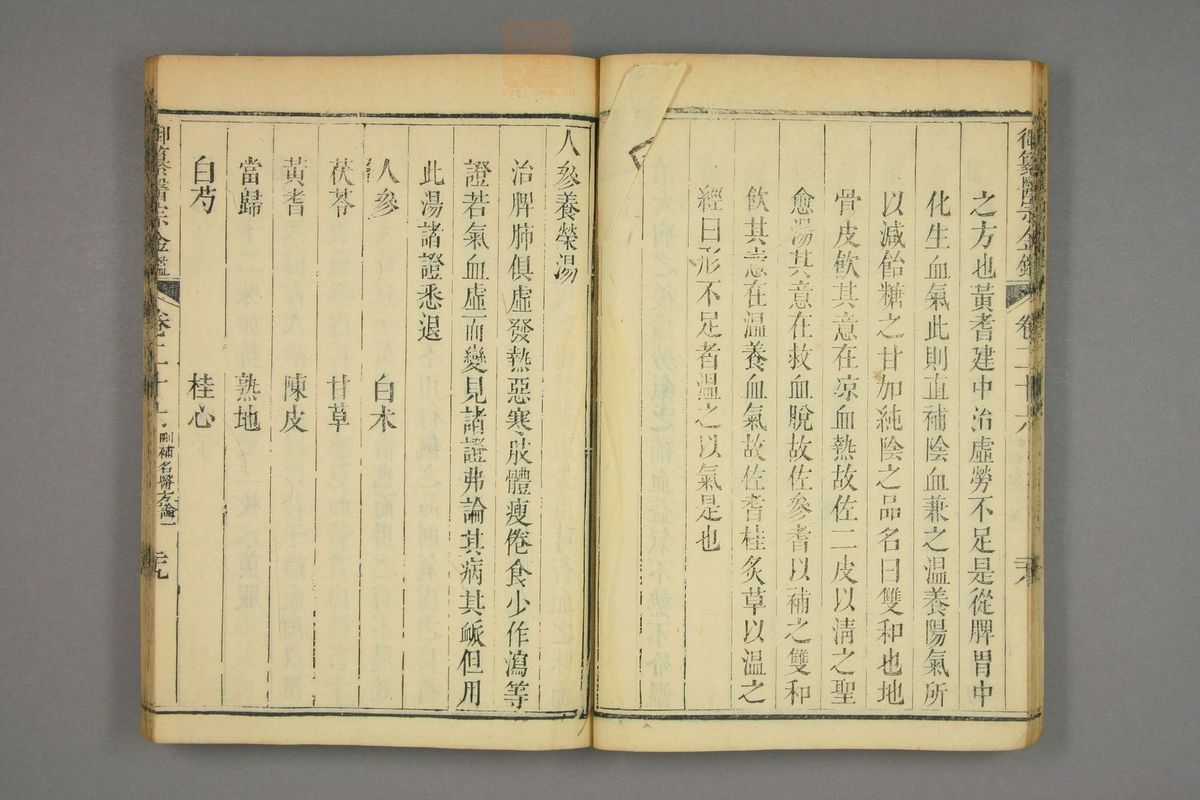 御纂醫宗金鑑 卷二十六 三十八
之方也黃耆建中治虛勞不足是從脾胃中
化生血氣此則直補陰血兼之溫養陽氣所
以減飴糖之甘加純陰之品名曰雙和也地
骨皮飲其意在凉血熱故佐二皮以清之聖
愈湯其意在救血脫故佐參耆以補之雙和
飲其意在溫養血氣故佐耆桂炙草以溫之
經曰形不足者溫之以氣是也
人參養榮湯
治脾肺俱虛發熱惡寒肢體瘦倦食少作瀉等
證若氣血虛而變見諸證弗論其病其脈但用
此湯諸證悉退
人參 白朮
茯苓 甘草
黃耆 陳皮
當歸 熟地
白芍 桂心
御纂醫宗金鑑 卷二十六 刪補名醫方論一 三十九
zysj.com.cn